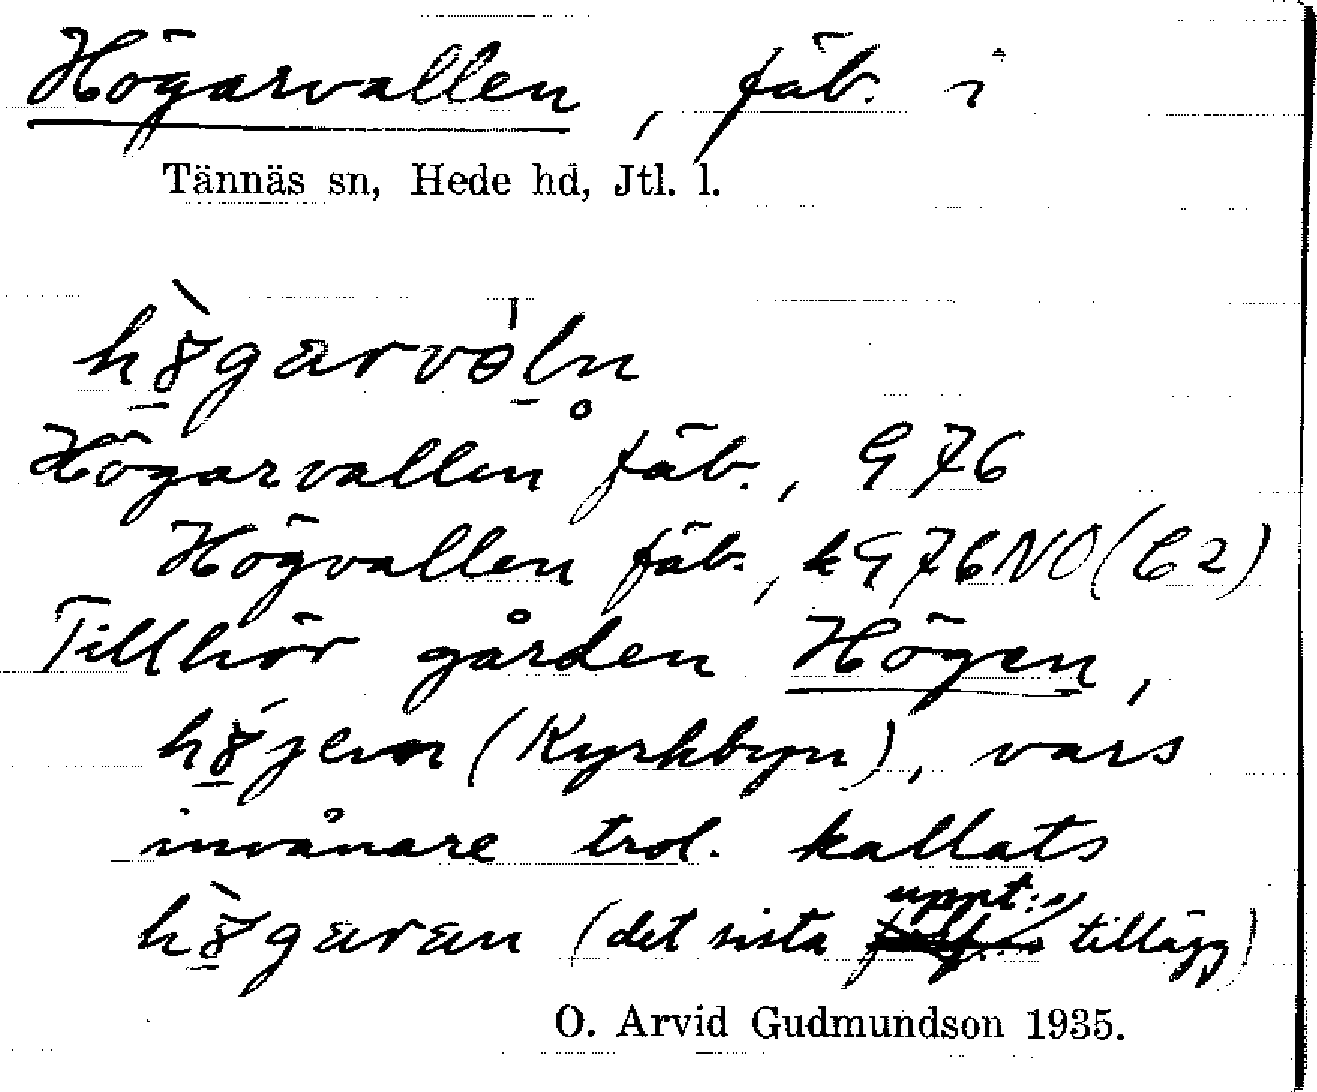 Högarvallen, fäb. i
Tännäs sn, Hede hd, Jtl. l.
Högarvallen fäb., G 76
Högvallen fäb., k G 76 NO (C2)
Tillhör gården Högen,
(Kyrkbyn), vars
invånare trol. kallats
(det sista uppt:s tillägg)
O. Arvid Gudmundson 1935.